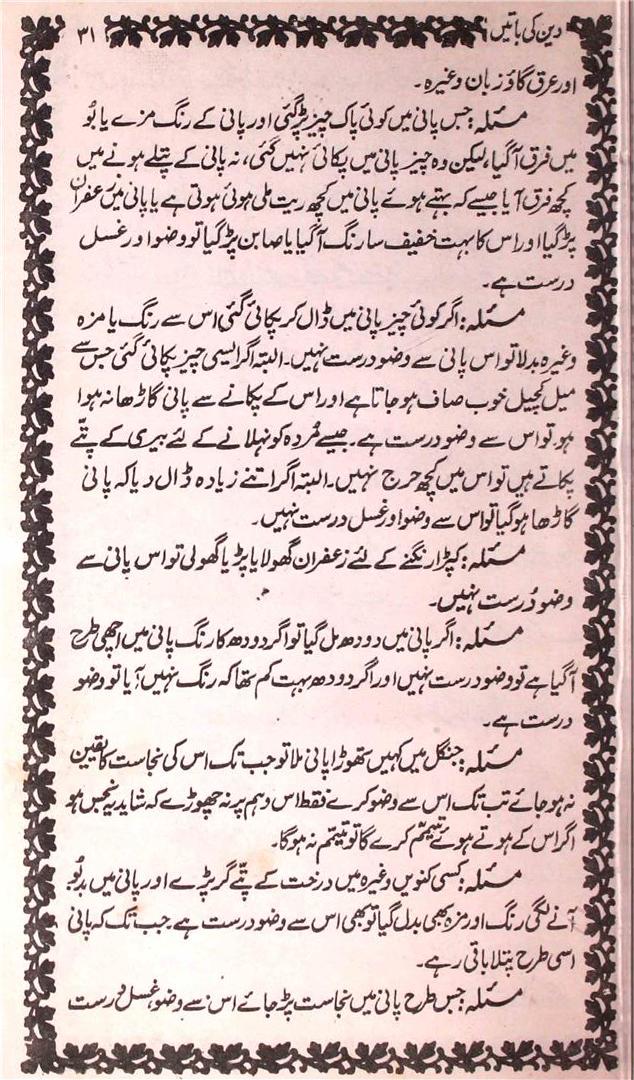 دین کی باتیں ۳۱
اور عرق گاؤ زبان وغیرہ۔
مسئلہ: جس پانی میں کوئی پاک چیز پڑ گئی اور پانی کے رنگ مزے یا بُو
میں فرق آ گیا، لیکن وہ چیز پانی میں پکائی نہیں گئی، نہ پانی کے پتلے ہونے میں
کچھ فرق آیا جیسے کہ بہتے ہوئے پانی میں کچھ ریت ملی ہوئی ہوتی ہے یا پانی میں زعفران
پڑ گیا اور اس کا بہت خفیف سا رنگ آ گیا یا صابن پڑ گیا تو وضو اور غسل
درست ہے۔
مسئلہ: اگر کوئی چیز پانی میں ڈال کر پکائی گئی اس سے رنگ یا مزہ
وغیرہ بدلا تو اس پانی سے وضو درست نہیں۔ البتہ اگر ایسی چیز پکائی گئی جس سے
میل کچیل خوب صاف ہو جاتا ہے اور اس کے پکانے سے پانی گاڑھا نہ ہوا
ہو تو اس سے وضو درست ہے۔ جیسے مُردہ کو نہلانے کے لئے بیری کے پتّے
پکاتے ہیں تو اس میں کچھ حرج نہیں۔ البتہ اگر اتنے زیادہ ڈال دیا کہ پانی
گاڑھا ہو گیا تو اس سے وضو اور غسل درست نہیں۔
مسئلہ: کپڑا رنگنے کے لئے زعفران گھولا یا پڑیا گھولی تو اس پانی سے
وضو دُرست نہیں۔
مسئلہ: اگر پانی میں دودھ مل گیا تو اگر دودھ کا رنگ پانی میں اچھی طرح
آ گیا ہے تو وضو درست نہیں اور اگر دودھ بہت کم تھا کہ رنگ نہیں آیا تو وضو
درست ہے۔
مسئلہ: جنگل میں کہیں تھوڑا پانی ملا تو جب تک اس کی نجاست کا یقین
نہ ہو جائے تب تک اس سے وضو کرے فقط اس وہم پر نہ چھوڑے کہ شاید یہ نجس ہو
اگر اس کے ہوتے ہوئے تیمّم کرے گا تو تیمّم نہ ہوگا۔
مسئلہ: کسی کنویں وغیرہ میں درخت کے پتّے گر پڑے اور پانی میں بدبُو
آنے لگی رنگ اور مزہ بھی بدل گیا تو بھی اس سے وضو درست ہے جب تک کہ پانی
اسی طرح پتلا باقی رہے۔
مسئلہ: جس طرح پانی میں نجاست پڑ جائے اس سے وضو، غسل درست